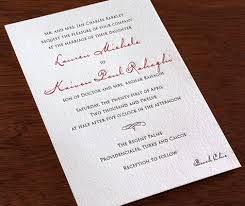 Mr. and Mrs. Ian Charles Barkley
request the pleasure of your company
at the marriage of their daughter
Lauren Michele
to
Keivon Paul Rahaghi
son of Doctor and Mrs. Asghar Rahaghi
Saturday the twenty-first of April
two thousand and twelve
at half past five in the afternoon
The Regent Palms
Providenciales, Turks and Caicos
Reception to follow
Beach Chic